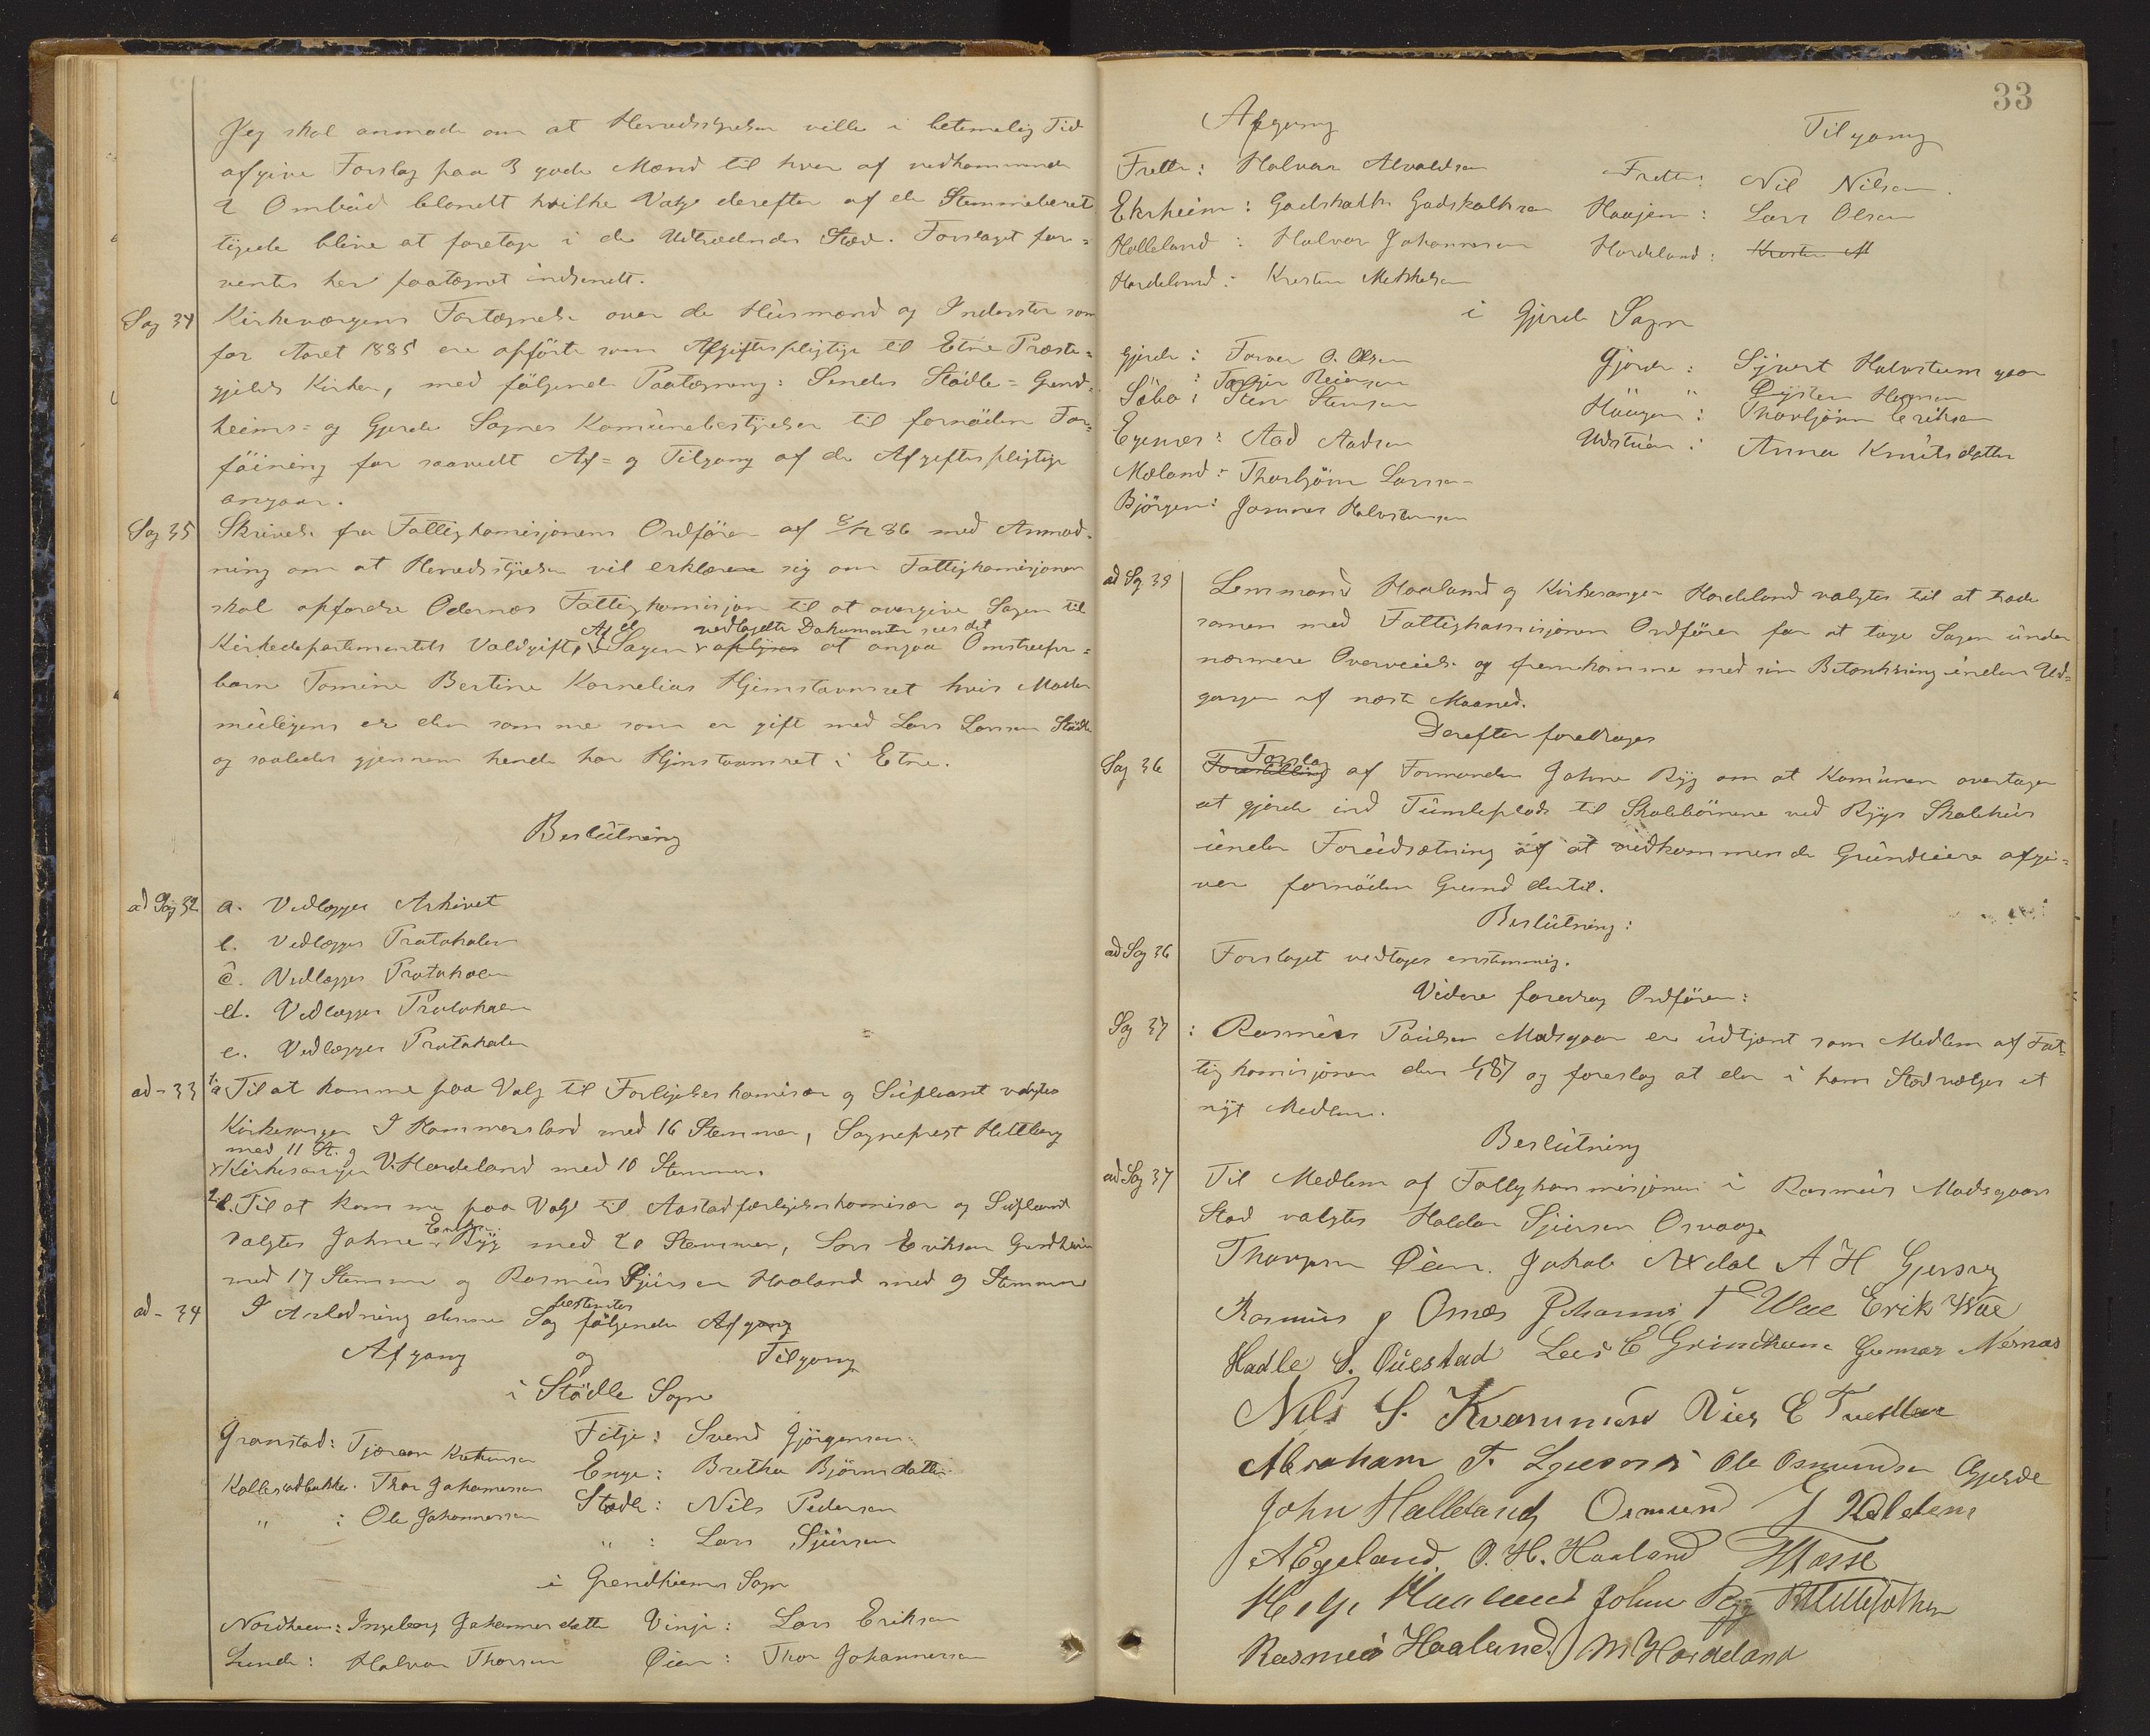 Jeg skal anmode om at Herredsstyrelsen ville i betimelig Tid
afgive Forslag paa 3 gode Mænd til hver af vedkommende
2 Ombud blandt hvilke Valge derefter af de Stemmeberet
tigede blive at foretage i de Udtrædendes Sted. Forslaget for=
ventes her paategnet indsendt.
Sag 34 Kirkeværgens Fortegnelse over de Husmænd og Inderster som
for Aaret 1885 ere opførte som Afgiftspligtige til Etne Præste=
gjelds Kirker, med følgende Paategning: Sendes Stødle= Grind=
heims= og Gjerde Sognes Komunebestyrelser til fornøden For=
føining for saavidt Af= og Tilgang af de Afgiftspligtige
angaar.
Sag 35 Skrivelse fra Fattigkomisjonens Ordfører af 8/12 86 med Anmod=
ning om at Herredsstyrelsen vil erklære sig om Fattigkomisjonen
skal opfordre Ødernæs Fattigkomisjon til at overgive Sagen til
Af de vedlagte Dokumenter sees det
Kirkedepartementets Voldgift, Sagen oplyses at angaa Omstreifer=
barn Tomine Bertine Kornelias Hjemstavnsret hvis Moder
muligens er den samme som er gift med Lars Larsen Stødle
og saaledes gjennem hende har Hjemstavnsret i Etne.
Beslutning
ad Sag 32 a. Vedlægges Arkivet
b. Vedlægges Protokolen
c. Vedlægges Protokolen
d. Vedlægges Protokolen
e. Vedlægges Protokolen
ad - 33 1. a Til at komme paa Valg til Forligelseskomisær og Supleant valgtes
Kirkesanger I Hammersland med 16 Stemmer, Sogneprest Heltberg
med 11 St. og
Kirkesanger V. Hardeland med 10 Stemmer.
2. Til at komme paa Valg til Aastadforligelseskomisær og Supleant
valgtes Johne Eriks. Ryg med 20 Stemmer, Lars Eriksen Grindheim
med 17 Stemmer og Rasmus Sjursen Haaland med 9 Stemmer
ad - 34 I Anledning denne Sag bestemtes følgende Afgang
Afgang og Tilgang
i Stødle Sogn
Granstad: Tjeran Kristensen Fitje: Svend Gjørgensen
Kallesadbakke: Thor Johannessen Enge: Bretha Bjørnsdatter
" : Ole Johannessen Stødle: Nils Pedersen
" : Lars Sjursen
i Grendheims Sogn
Nordheim: Ingeborg Johannesdatter Vinje: Lars Eriksen
Lunde: Halvor Thorsen Øien: Thor Johannessen
33
Afgang Tilgang
Frette: Halvor Alvaldsen Frette: Nil Nilsen.
Ekrheim: Gadskalk Gadskalksen Haajem: Lars Olsen
Halleland: Halvor Johannessen Hardeland: Kresten M
Hardeland: Kresten Mekkelsen
i Gjerde Sogn
Gjerde: Torver O. Olsen Gjerde: Sjvert Halvstensgaar
" : Torger Reiersen " Øysten Hansen
Sæbø: Sten Stensen Haugen: Thorbjørn Eriksen
Egenæs: Aad Aadsen Udstuen: Anna Knutsdatter
Mæland: Thorbjørn Larsen
Bjørgen: Jannes Halvorsen
ad Sag 35 Lensmand Haaland og Kirkesanger Hardeland valgtes til at træde
samen med Fattigkomisjonens Ordfører for at tage Sagen under
nærmere Overveielse og fremkomme med sin Betænkning inden Ud=
gangen af næste Maaned.
Derefter foredrages
Sag 36 Forslag
Forestilling af Formanden Johne Ryg om at Komunen overtager
at gjerde ind Tumleplads til Skolebørnene ved Rygs Skolehus
under Forudsætning af at vedkommende Grundeiere afgi=
ver fornøden Grund dertil.
Beslutning:
ad Sag 36 Forslaget vedtages enstemmig.
Videre foredrag Ordføren:
Sag 37 : Rasmus Paulsen Madsgaar er udtjent som Medlem af Fat=
tigkomisjonen den 1/1 87 og foreslog at der i hans Sted vælges et
nyt Medlem.
Beslutning
ad Sag 37 Til Medlem af Fattigkommisjonen i Rasmus Madsgaars
Sted valgtes Haldor Sjursen Osvaag.
Thorgeren Øien. Jakob Axdal A H Gjersvig
Rasmus P Omes Johannes T Wee Erik Wae
Hadle S. Questad Lars E Grindheim Gunnar Nernæs
Nils S. Kvammen E Tvedten
Abraham T. Ole Osmundsen Gjerde
John Halleland Osmund J
A Egeland. O. H. Haaland
Helge Haaland Johne Ryg
Rasmus Haaland. M Hardeland